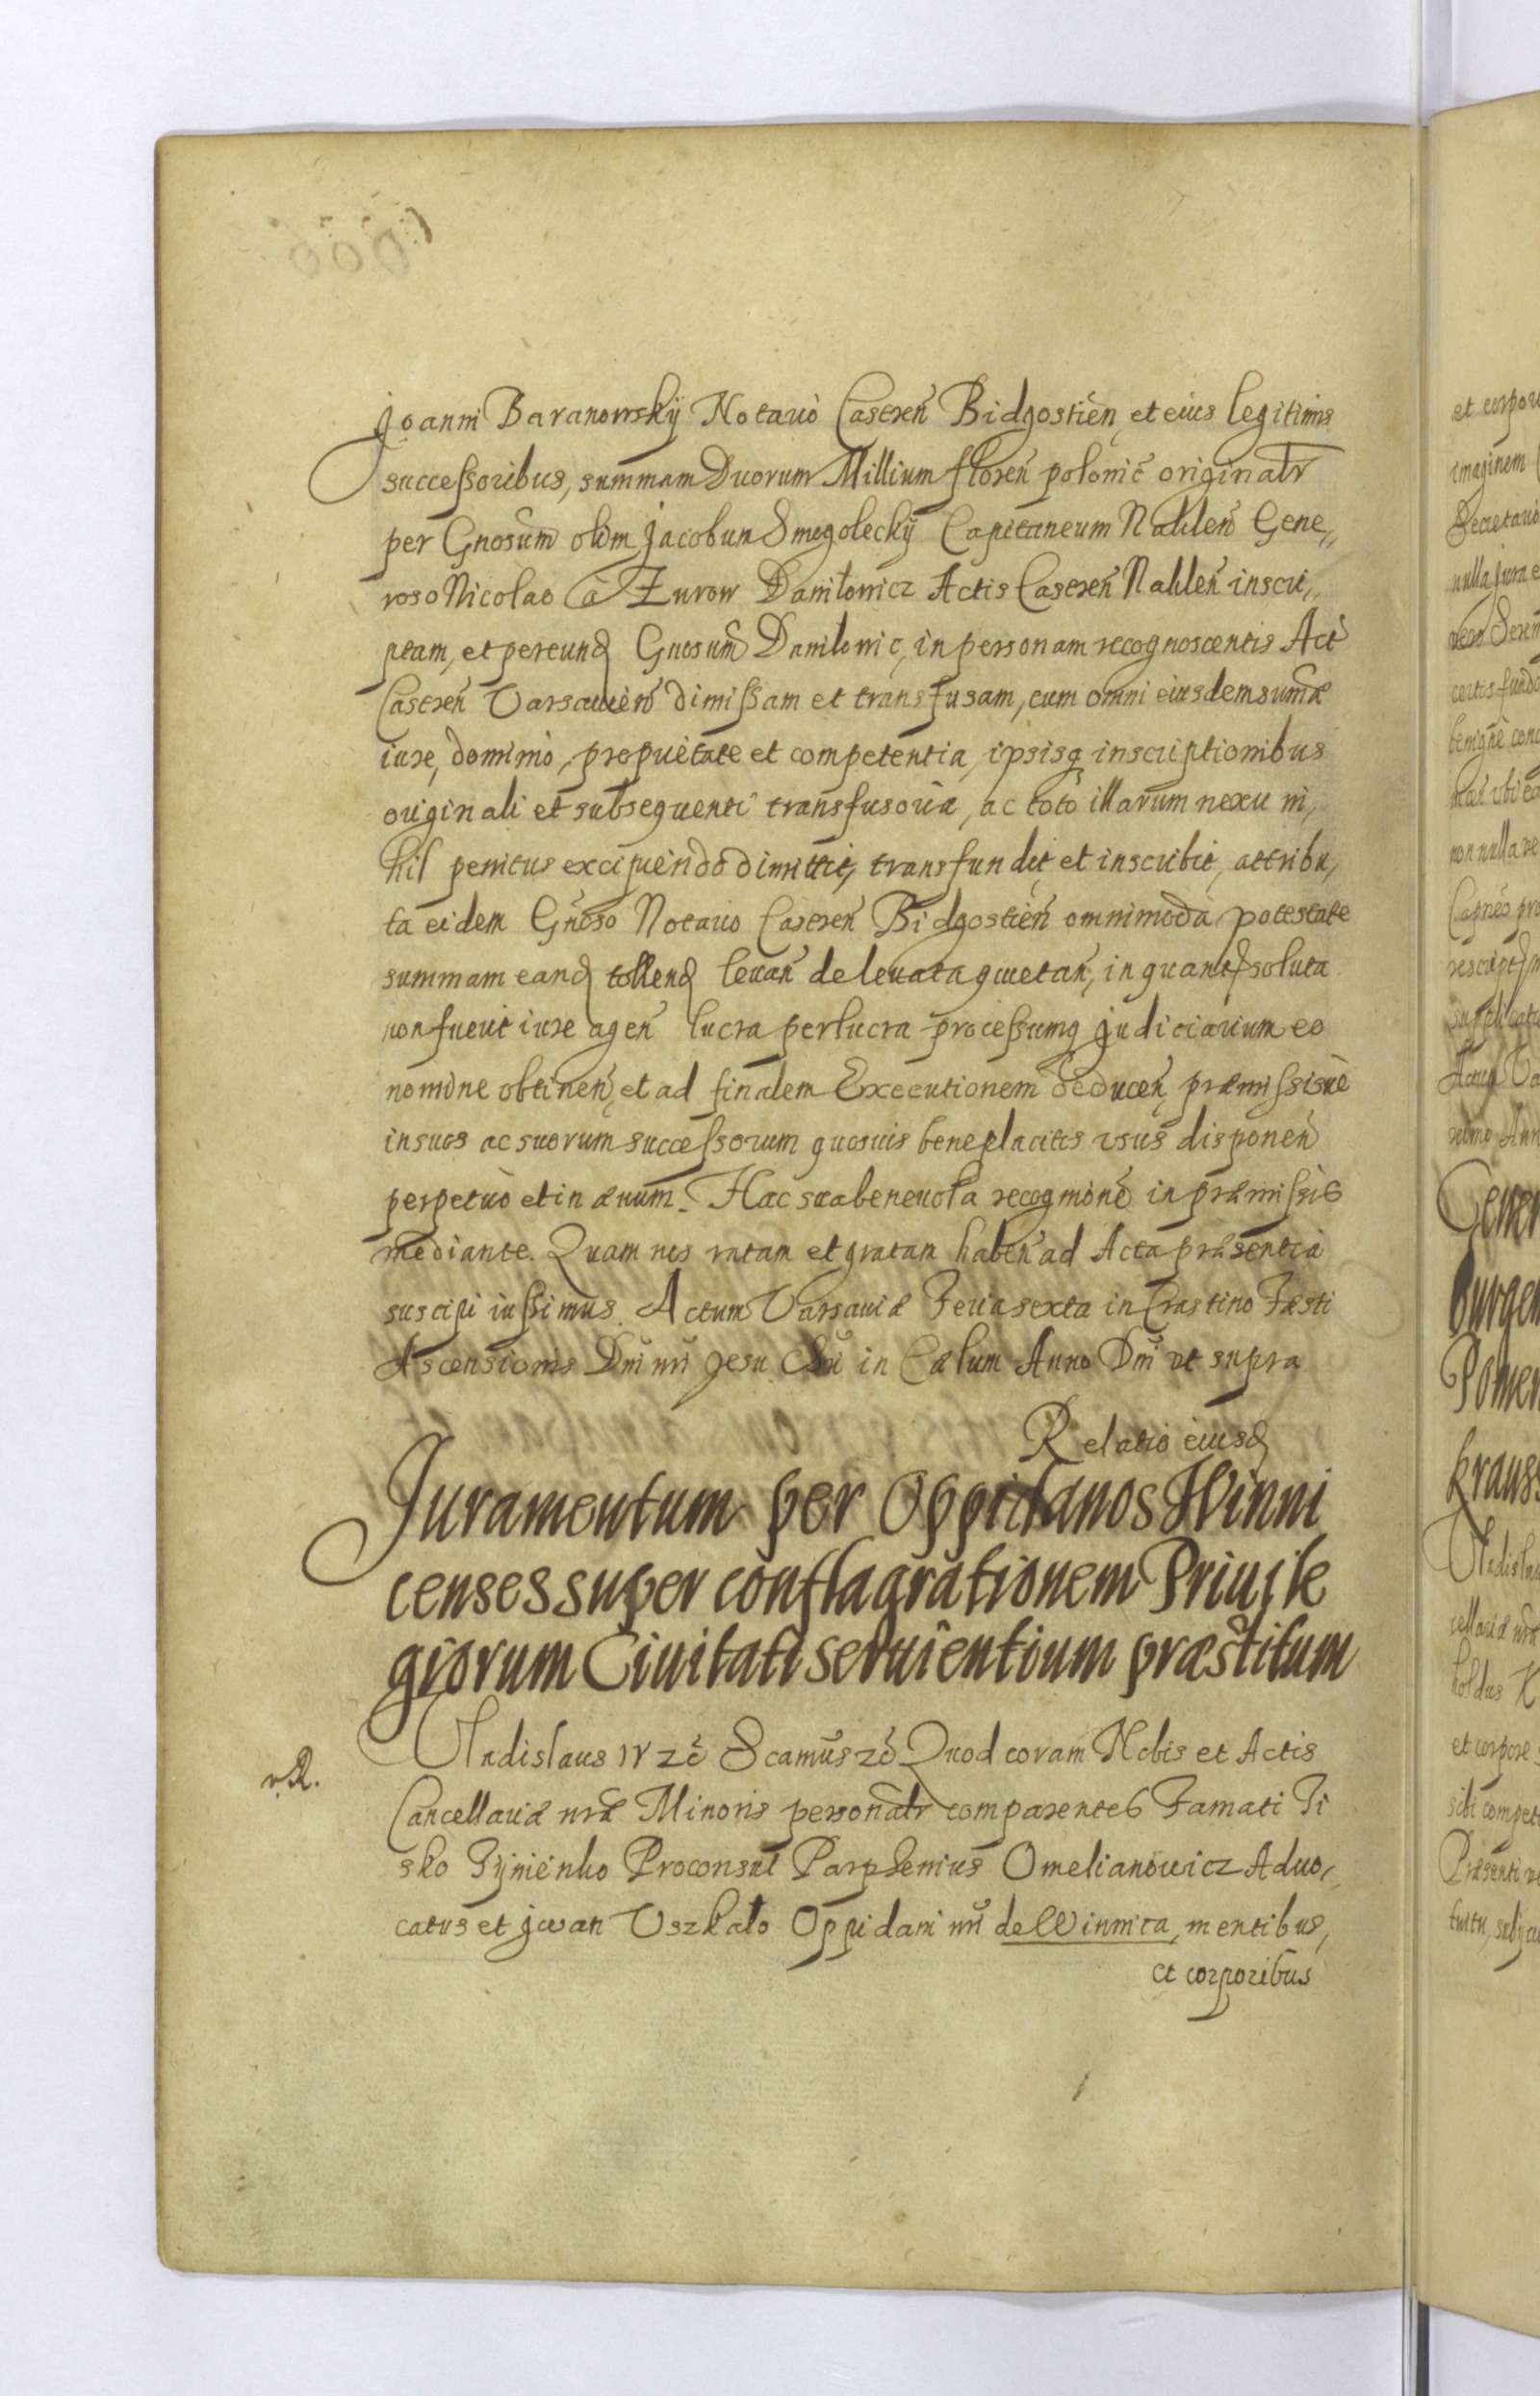 Joanni Baranowskÿ Notario Castren̄ Bidgostien̄, et eius legitimis
successoribus, summam Duorum Millium floren̄ polonic̄ originalr̄
per Gn̄osum olim Jacobum Smogoleckÿ Capitaneum Naklen̄ Gene„
roso Nicolao à Zurow Daniłowicz Actis Castren̄ Naklen̄ inscri„
ptam, et per eund Gn̄osum Daniłowic, in personam recognoscentis Act̄
Castren̄ Varsauien̄ dimissam et transfusam, cum omni eiusdem sum̄æ
iure, dominio, proprietate et competentia, ipsisq inscriptionibus
originali et subsequenti transfusoria, ac toto illarum nexu ni,
hil penitus excipiendo dimittit, transfundit et inscribit, attribu,
ta eidem Gn̄oso Notario Castren̄ Bidgostien̄ omnimoda potestate
summam eand tollend leuan̄ de leuata quietan̄, in quant soluta
non fuerit iure agen̄ lucra perlucra processumq judiciarium eo
nomine obtinen̄, et ad finalem Executionem deducen̄, præmissisue
in suos ac suorum successorum quosuis beneplacitos vsus disponen̄
perpetuò et in æuum. Hac sua beneuola recogni̇one in præmissis
mediante. Quam nos ratam et gratam haben̄ ad Acta præsentia
suscipi iussimus. Actum Varsauiæ Feria sexta in Crastino Fæsti
Ascensionis Dn̄i nr̄i Jesu Chr̄i in Cælum Anno Dn̄i vt supra
Relatio eiusd
Juramentum per Oppidanos Winni
censes super conflagrationem Priuile
giorum Ciuitati seruientium præstitum
Vladislaus IV zc̄ Scamus̄ zc̄ Quod coram Nobis et Actis
Cancellariæ nr̄æ Minoris personalr̄ comparentes Famati Ti
sko Tÿmienko Proconsul Parphenius Omelianowicz Aduo,
catus et Jwan Vszkało Oppidani nr̄i de Winnica, mentibus,
et corporibus